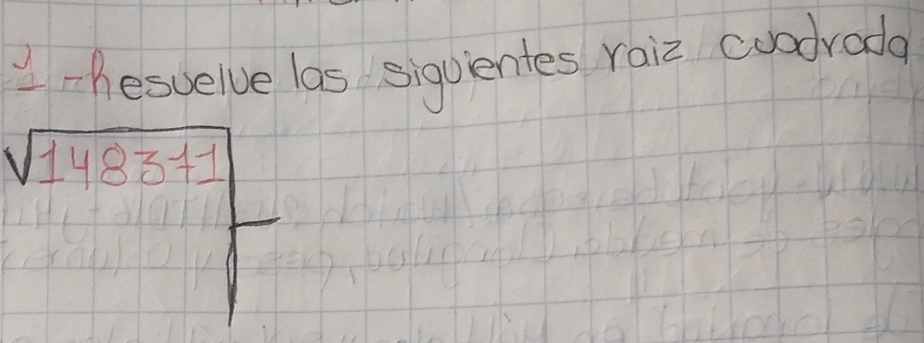 1-Resuelve las siguientes raiz cuadrada
√148371